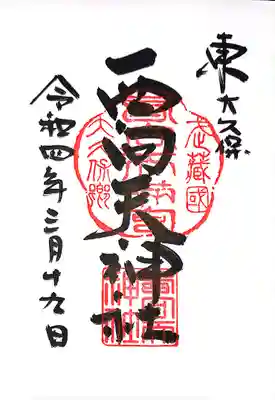 東大久保
西向天神社
令和四年三月十九日
武蔵國
大久保郷